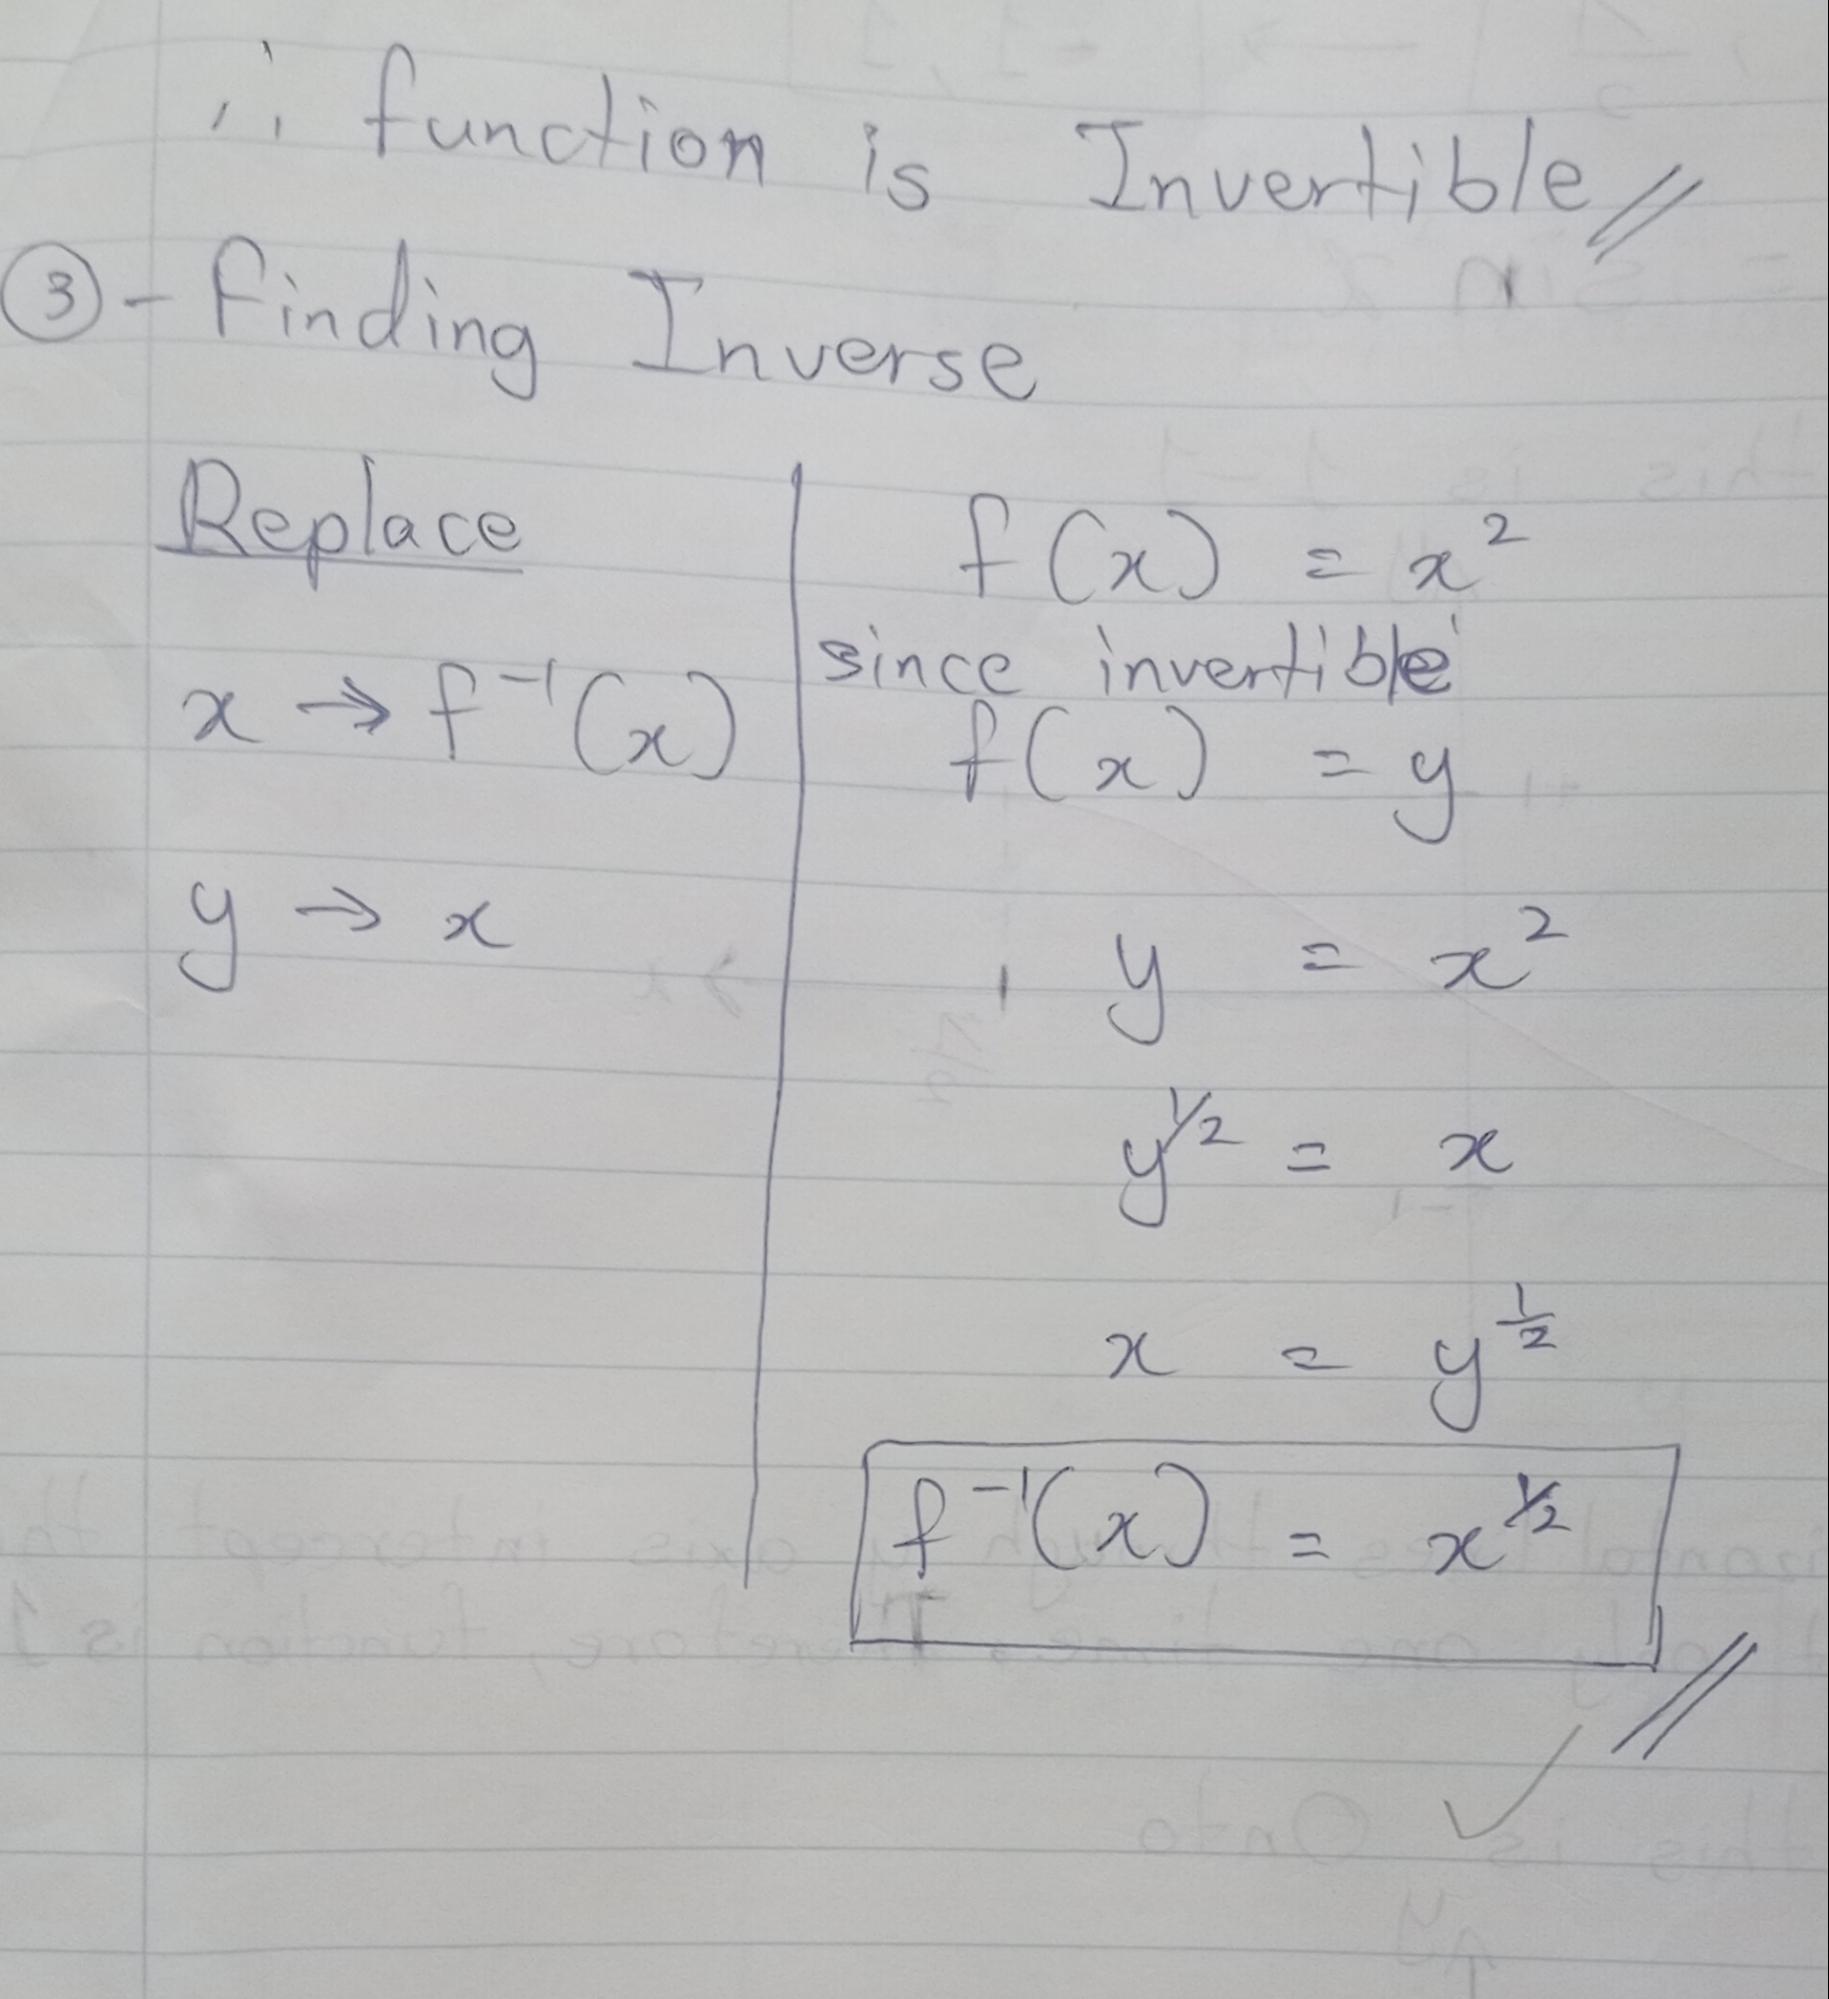 ∴ function is Invertible
③ - Finding Inverse
Replace
x → f⁻¹(x)
y → x
f(x) = x²
since invertible
f(x) = y
y = x²
y^1/2 = x
x = y^1/2
f⁻¹(x) = x^1/2